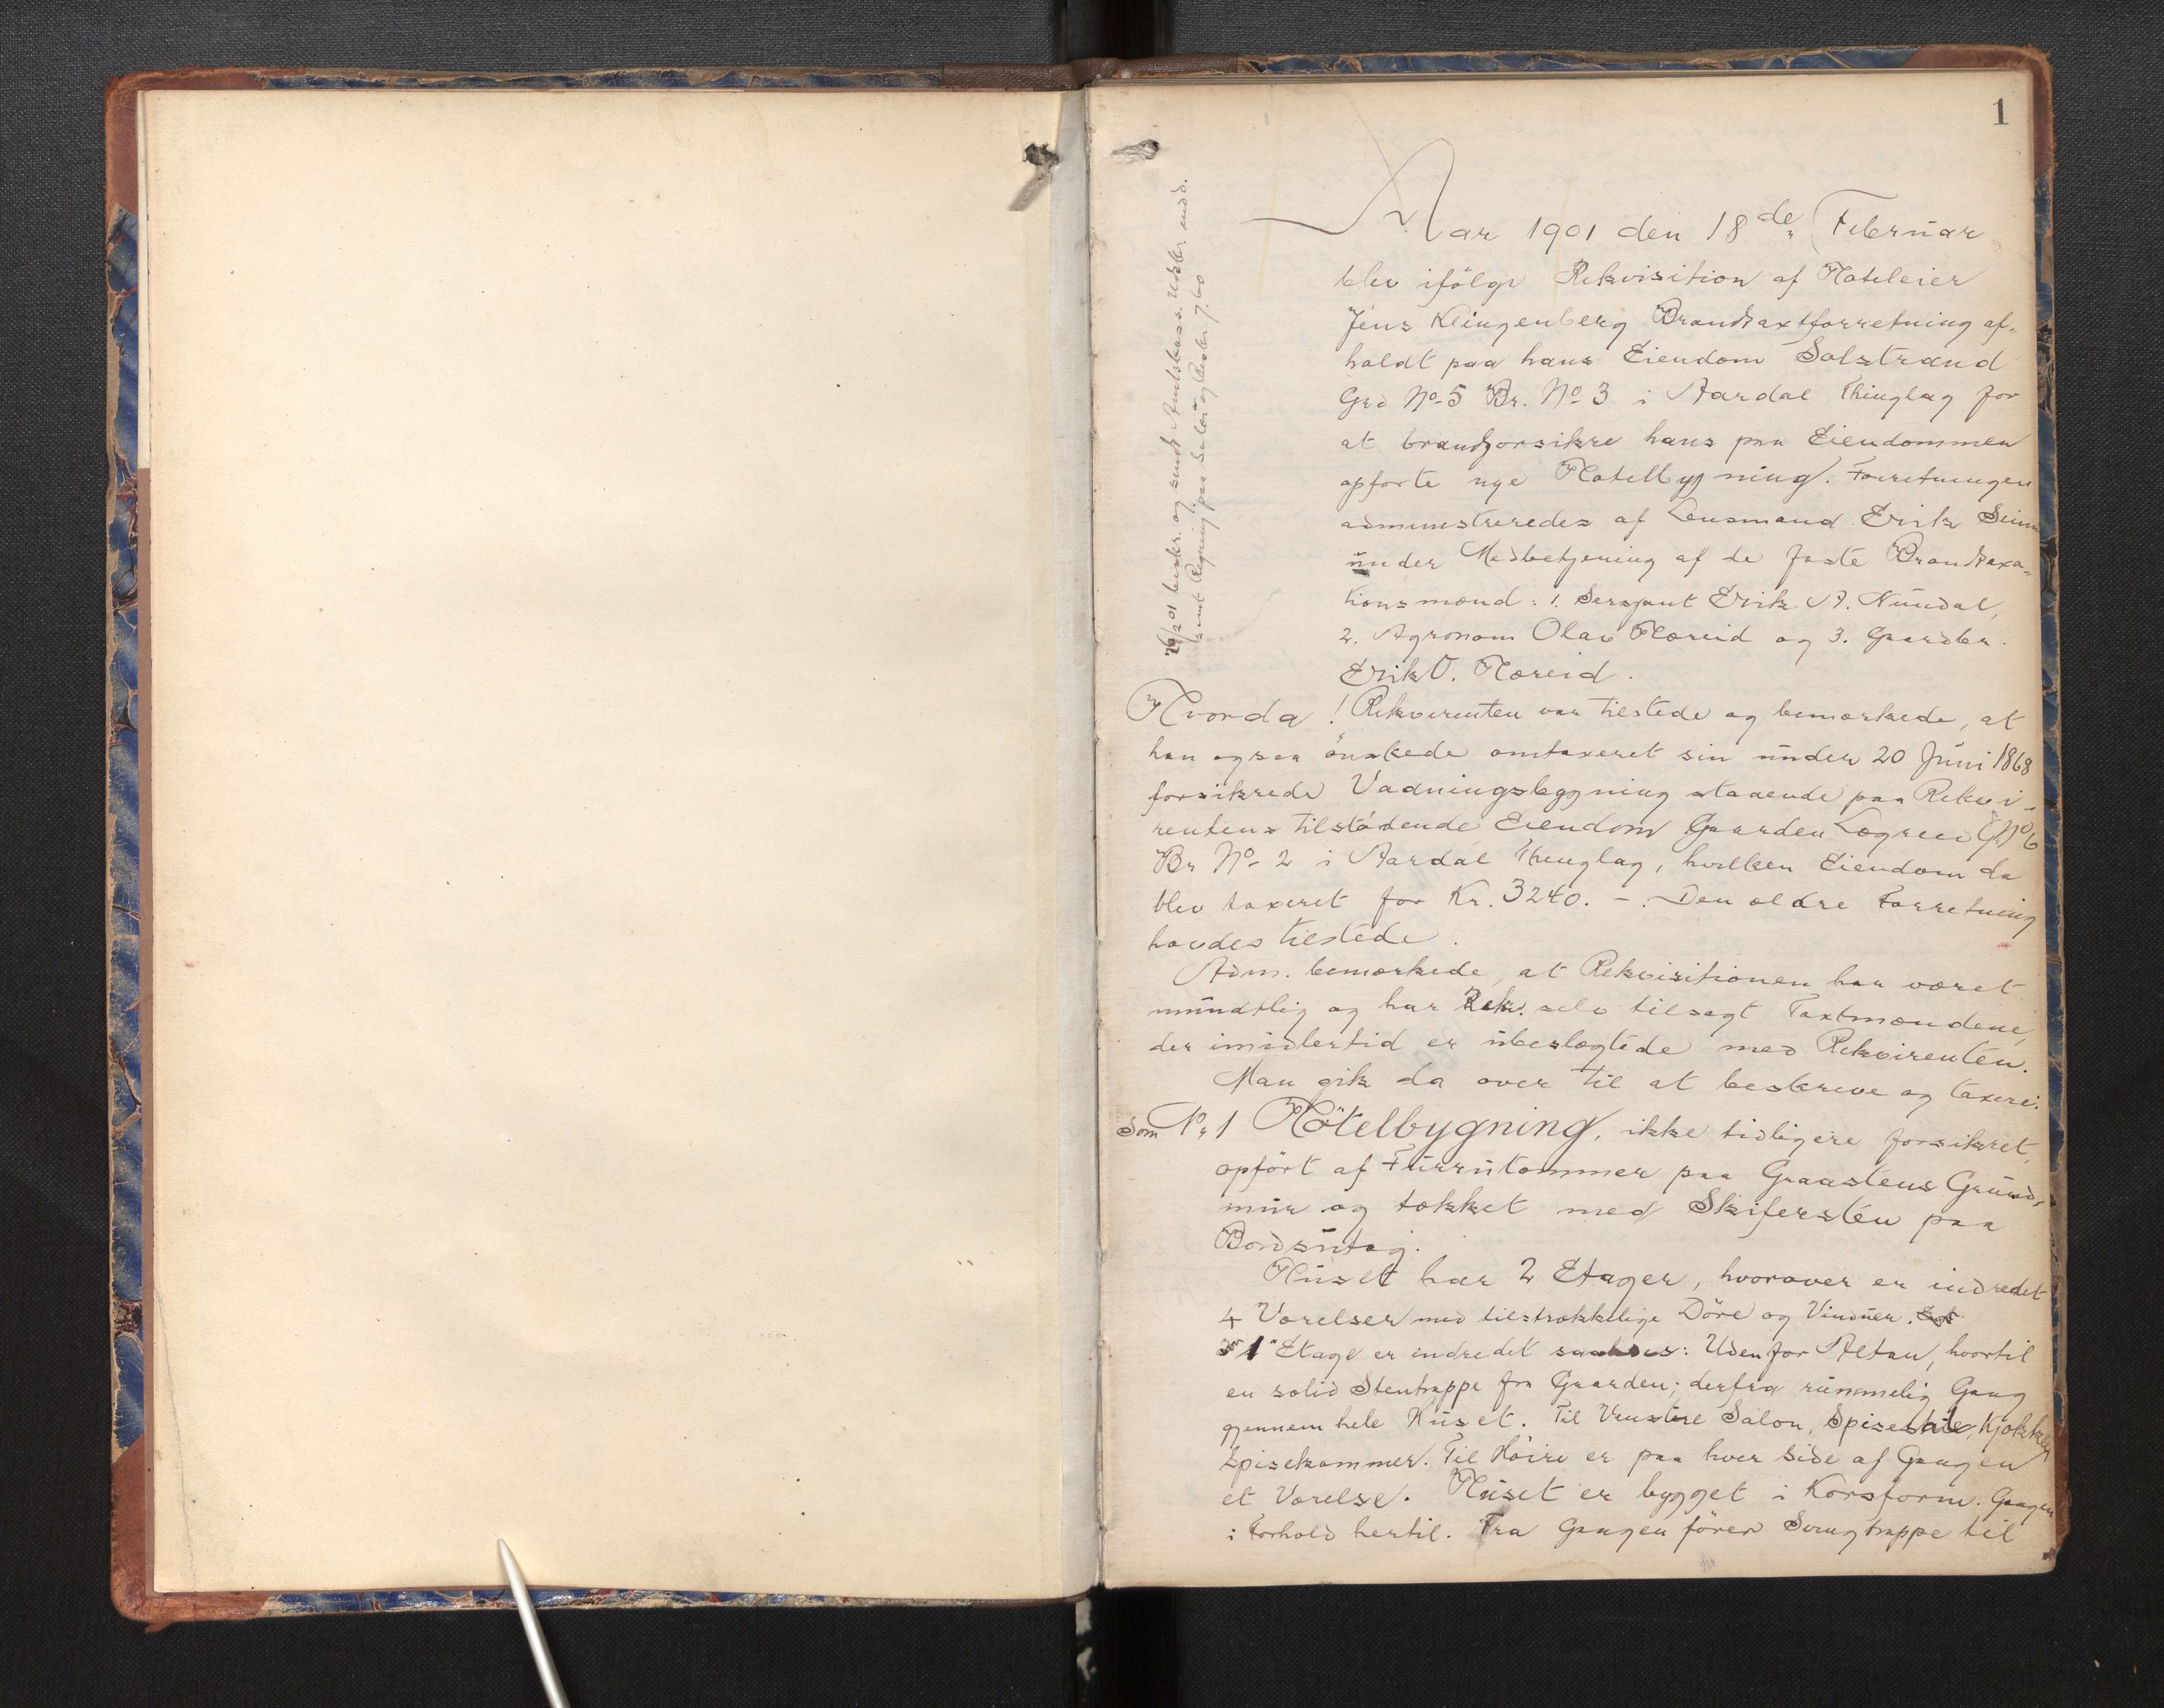 1
Aar 1901 den 18de Februar
blev ifölge Rekvisition af Hoteleier
Jens Klingenberg Brandtaxtforretning af-
holdt paa hans Eiendom Solstrand
Grd No 5 Br. No 3 i Aardal Thinglag for
at brandforsikre hans paa Eiendommen
opförte nye Hotelbygning. Forretningen
administreredes af Lensmand Erik Seim
under Medbetjening af de faste Brandtaxa-
tionsmænd: 1. Sersjant Erik A. Nundal,
2. Agronom Olav Hæreid og 3. Gaardbr.
Erik O. Hæreid.
Hvorda! Rekvirenten var tilstede og bemærkede, at
han ogsaa önskede omtaxeret sin under 20 Juni 1868
forsikrede Vaaningsbygning staaende paa Rekvi-
rentens tilstödende Eiendom Gaarden Lægreid G.No 6
Br No 2 i Aardal Thinglag, hvilken Eiendom da
blev taxeret for Kr. 3240. -. Den ældre Forretning
havdes tilstede.
Adm. bemærkede, at Rekvisitionen har været
mundtlig og har Rekv. selv tilsagt Taxtmændene,
der imidlertid er ubeslægtede med Rekvirenten.
Man gik da over til at beskrive og taxere:
Som No 1 Hötelbygning, ikke tidligere forsikret,
opfört af Furrutömmer paa Graastens Grund-
mur og tækket med Skifersten paa
Bordsutag.
Huset har 2 Etager, hvorover er indredet
4 Værelser med tilstrækkelige Döre og Vinduer.
1 Etage er indredet saaledes: Udenfor Altan, hvortil
en solid Stentrappe fra Gaarden; derfra rummelig Gang
gjennem hele Huset. Til Venstre Salon, Spisesale, Kjøkken
Spisekammer. Til Höire er paa hver Side af Gangen
et Værelse. Huset er bygget i Korsform. Gangen
i Forhold hertil. Fra Gangen förer Svingtrappe til
26/2 01 beskr. og sendt Amtskass.
samt Regning paa Salær og Porto 7.60